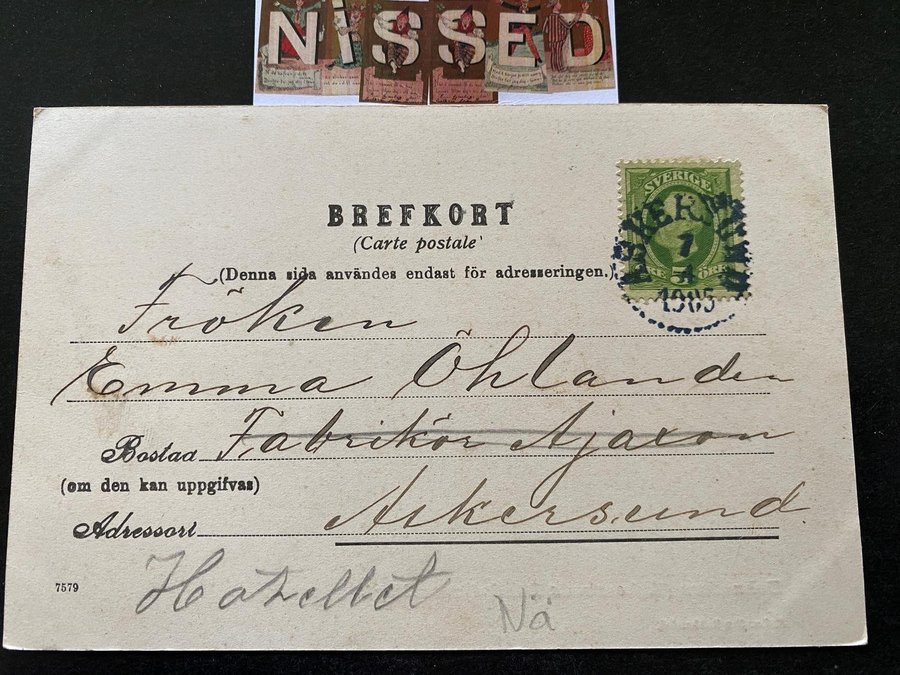 NISSED
BREFKORT
(Carte postale)
(Denna sida användes endast för adresseringen.)
SVERIGE
ASKERSUND
7
4
1905
ÖRE
Fröken
Emma Öhlander
Bostad Fabrikör Ajaxon
(om den kan uppgifvas)
Adressort Askersund
7579
Hotellet
Nä